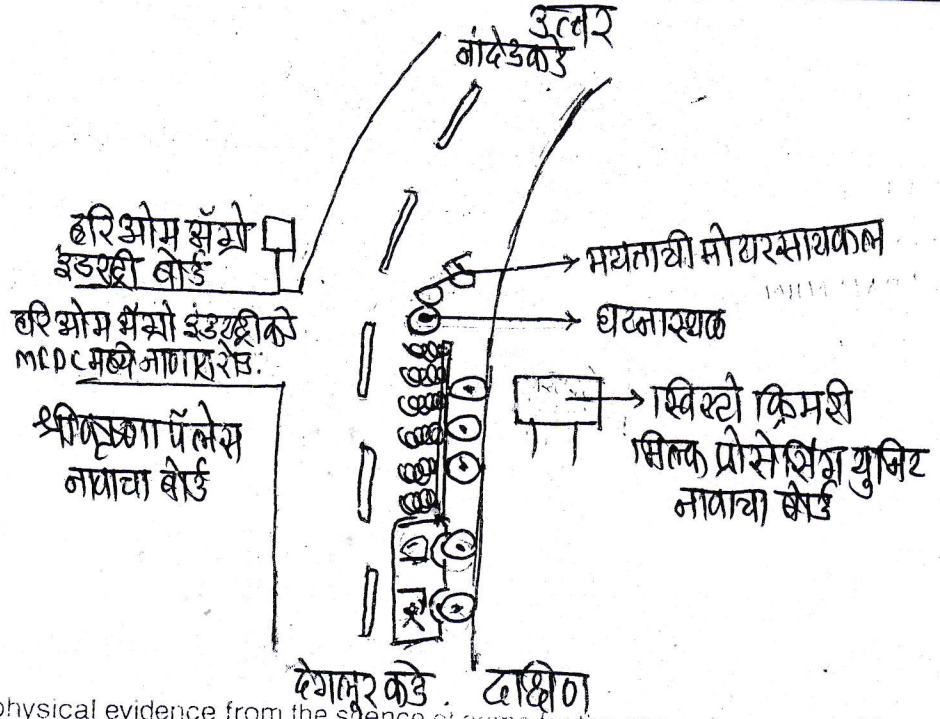 उत्तर
नांदेडकडे
हरिओम अॅग्रो
इंडस्ट्री बोर्ड
हरिओम अॅग्रो इंडस्ट्रीकडे
MIDC मध्ये जाणारा रोड.
श्रीकृष्णा पॅलेस
नावाचा बोर्ड
मयताची मोटरसायकल
घटनास्थळ
क्रिमरी
मिल्क प्रोसेसिंग युनिट
नावाचा बोर्ड
देगलूर कडे.
दक्षिण
physical evidence from the